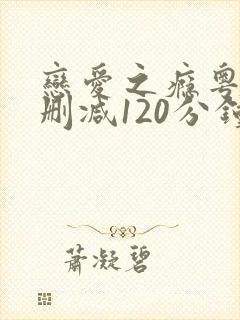 戀愛之癮粵
刪減120分鐘
蕭凝碧